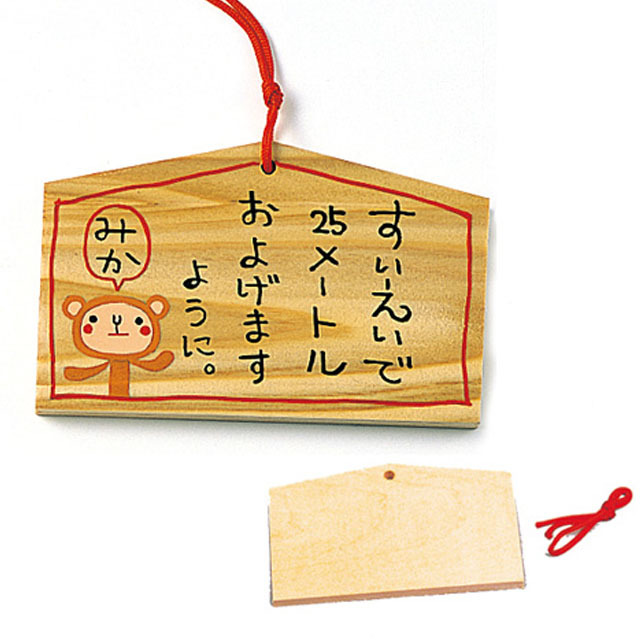 すいーえいで
25メートル
およげます
ように。
みか